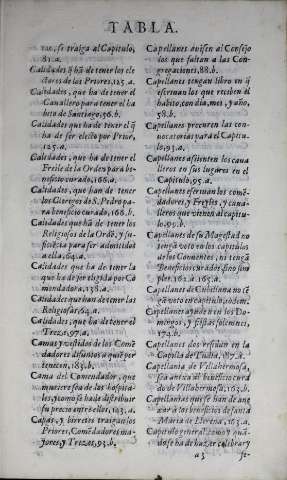 TABLA.
tuo, se traiga al Capitulo,
81.a.
Calidades q̃ hã de tener los ele
ctores de los Priores, 125.a.
Calidades, que ha de tener el
Cauallero para tener el ha
bito de Santiago, 56.b.
Calidades que ha de tener el q̃
ha de ser electo por Prior,
125.a.
Calidades, que ha de tener el
Freile de la Orden para be-
neficio curado, 166.a.
Calidades, que han de tener
los Clerigos de S. Pedro pa-
ra beneficio curado, 166.b.
Calidades que hã de tener los
Religiosos de la Ordẽ, y su-
ficiẽcia para ser admitidos
a ella, 64.a.
Calidades que ha de tener la
que ha de ser electa por Co
mendadora, 138.a.
Calidades que han de tener las
Religiosas, 64.a.
Calidades, que ha de tener el
Treze, 97.a.
Camas y vestidos de los Comẽ
dadores difuntos a quiẽ per
tenecen, 185.b.
Cama del Comendador, que
muriere sea de los hospita-
les, y como se ha de distribuir
su precio entre ellos, 103.a.
Capas, y birretes traigan los
Priores, Comendadores ma-
yores, y Trezes, 93.b.
Capellanes auisen al Consejo
los que faltan a las Con-
gregaciones, 88.b.
Capellanes tengan libro en q̃
escriuan los que reciben el
habito, con dia, mes, y año,
58.b.
Capellanes procuren las con-
uocatorias para el Capitu-
lo, 93.a.
Capellanes assienten los caua
lleros en sus lugares en el
Capitulo, 95.a.
Capellanes escriuan los comẽ-
dadores, y Freyles, y caua-
lleros que vienen al capitu-
lo, 95.b.
Capellanes de su Magestad no
tengã voto en los capitulos
de los Conuentes, ni tengã
Beneficios curados sino sim
ples, 161.a. 165.a.
Capellanes de Cubillana no tẽ
gã voto en capitulo, eodem.
Capellanes ayudẽ a en los Do-
mingos, y fiestas solemnes,
172.b.
Capellanes dos residan en la
Capilla de Tudia, 187.a.
Capellania de Villahermosa,
sea aneixa al beneficio cura-
do de Villahermosa, 165.b.
Capellanias que se han de ane
xar a los beneficios de santa
Maria de Llerena, 163.a.
Capitulo general, como, y quã
do se ha de hazer, celebrar y
a 3 se-